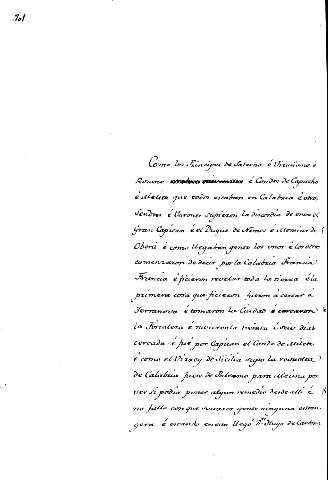 Como los Principes de Salerno é Visiniano é
Rosano é Condes de Capacho
é Melito que todos estaban en Calabria é otros
Señores é Varones supieron la discordia de entre el
Gran Capitan é el Duque de Nemos é Monsiur de
Obeni é como llegaban gente los unos é los otros
comenzaron de decir por la Calabria Francia
Francia é ficieron revelar toda la tierra é la
primera cosa que ficieron fueron á cercar á
Terranova é tomaron la Ciudad é cercaron
la Fortaleza é tuvieronla treinta é seis dias
cercada é fué por Capitan el Conde de Melito
é como el Visrey de Sicilia supo la revuelta
de Calabria de Palermo para Mecina por
ver si podia poner algun remedio desde alli é
no fallo con que gente ninguna estran-
gera é estando en esto llegó Dn. Hugo de Cardona